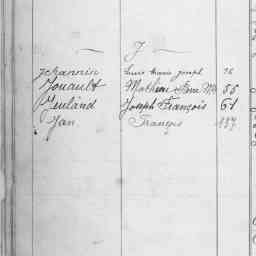 J
Jehannin Louis Marie Joseph 26
Jouault Mathieu Pierre M 55
Jeuland Joseph François 61
Jan François 137